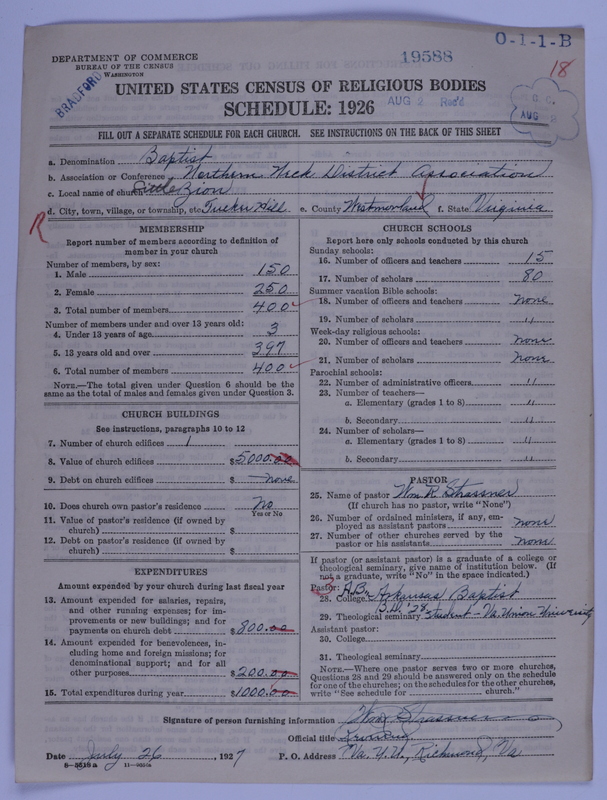 DEPARTMENT OF COMMERCE
BUREAU OF THE CENSUS
WASHINGTON
BRADFORD
19588
O-1-1-B
18
UNITED STATES CENSUS OF RELIGIOUS BODIES
SCHEDULE: 1926
AUG 2 Rec'd
AUG 2
FILL OUT A SEPARATE SCHEDULE FOR EACH CHURCH. SEE INSTRUCTIONS ON THE BACK OF THIS SHEET
a. Denomination Baptist
b. Association or Conference Northern Neck District Association
c. Local name of church Little Zion
d. City, town, village, or township, etc Tucker Hill e. County Westmorland f. State Virginia
R
MEMBERSHIP
Report number of members according to definition of member in your church
Number of members, by sex:
1. Male 150
2. Female 250
3. Total number of members 400
Number of members under and over 13 years old:
4. Under 13 years of age 3
5. 13 years old and over 397
6. Total number of members 400
NOTE.—The total given under Question 6 should be the
same as the total of males and females given under Question 3.
CHURCH BUILDINGS
See instructions, paragraphs 10 to 12
7. Number of church edifices 1
8. Value of church edifices $5000.00
9. Debt on church edifices $ none
10. Does church own pastor's residence No
Yes or No
11. Value of pastor's residence (if owned by
church) $
12. Debt on pastor's residence (if owned by
church) $
EXPENDITURES
Amount expended by your church during last fiscal year
13. Amount expended for salaries, repairs,
and other running expenses; for im-
provements or new buildings; and for
payments on church debt $800.00
14. Amount expended for benevolences, in-
cluding home and foreign missions; for
denominational support; and for all
other purposes $200.00
15. Total expenditures during year $1000.00
CHURCH SCHOOLS
Report here only schools conducted by this church
Sunday schools:
16. Number of officers and teachers 15
17. Number of scholars 80
Summer vacation Bible schools:
18. Number of officers and teachers none
19. Number of scholars "
Week-day religious schools:
20. Number of officers and teachers none
21. Number of scholars none
Parochial schools:
22. Number of administrative officers "
23. Number of teachers—
a. Elementary (grades 1 to 8) "
b. Secondary "
24. Number of scholars—
a. Elementary (grades 1 to 8) "
b. Secondary "
PASTOR
25. Name of pastor Wm R. Strassner
(If church has no pastor, write "None")
26. Number of ordained ministers, if any, em-
ployed as assistant pastors none
27. Number of other churches served by the
pastor or his assistants none
If pastor (or assistant pastor) is a graduate of a college or
theological seminary, give name of institution below. (If
not a graduate, write "No" in the space indicated.)
Pastor:
28. College A.B. Arkansas Baptist
B.D. '28
29. Theological seminary Student - Va. Union University
Assistant pastor:
30. College
31. Theological seminary
NOTE.—Where one pastor serves two or more churches,
Questions 28 and 29 should be answered only on the schedule
for one of the churches; on the schedules for the other churches,
write "See schedule for church."
Signature of person furnishing information Wm R. Strassner
Official title
Date July 26, 1927 P. O. Address Va. U. U., Richmond, Va
8-5618a